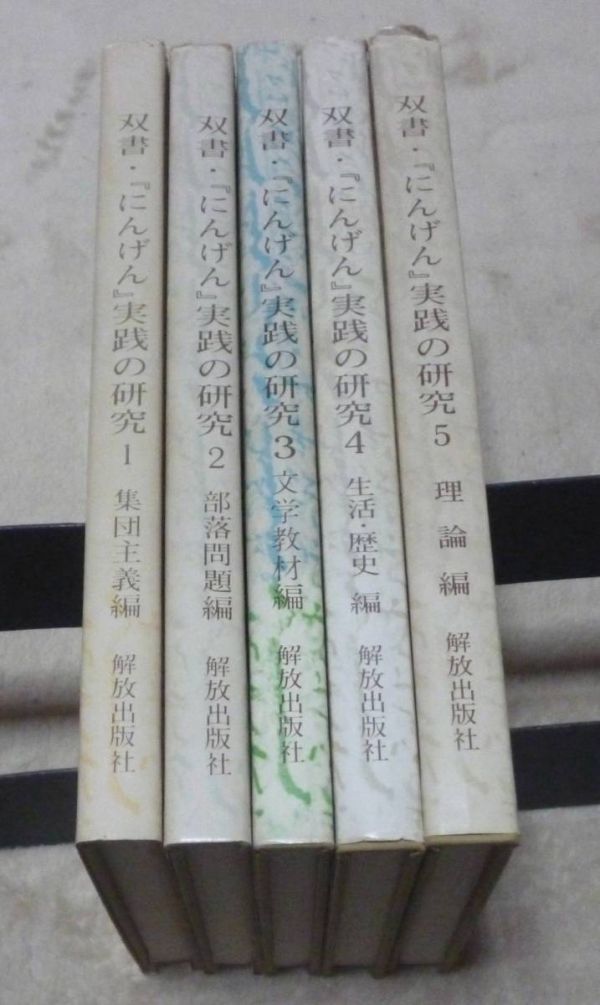 双書・『にんげん』実践の研究 1 集団主義編 解放出版社
双書・『にんげん』実践の研究 2 部落問題編 解放出版社
双書・『にんげん』実践の研究 3 文学教材編 解放出版社
双書・『にんげん』実践の研究 4 生活・歴史 編 解放出版社
双書・『にんげん』実践の研究 5 理論編 解放出版社